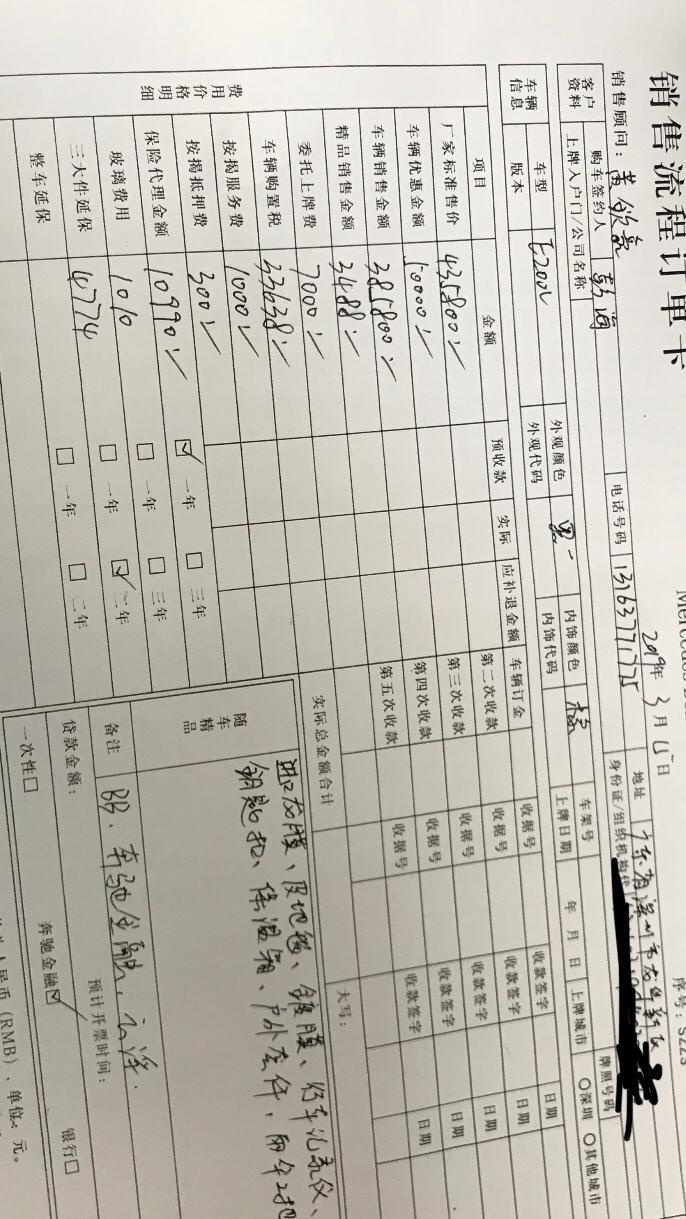 销售流程订单卡
2019年3月15日
销售顾问：黄
电话号码 13163771725
地址 广东省深圳市龙华新区
购车签约人
身份证/组织机构代
客户资料
上牌入户门/公司名称
车架号
上牌日期 年 月 日
上牌城市
牌照号码
○深圳 ○其他城市
车辆信息
车型 E200L
版本
外观颜色 黑
外观代码
内饰颜色 棕
内饰代码
费用价格明细
项目 金额 预收款 实际 应补退金额
厂家标准售价 435800
车辆优惠金额 50000
车辆销售金额 385800
精品销售金额 3488
委托上牌费 7000
车辆购置税 33638
按揭服务费 1000
按揭抵押费 300
保险代理金额 10990 ☑一年 □三年
玻璃费用 1010 □一年 □三年
三大件延保 4774 □一年 ☑二年
整车延保 □一年 □二年
车辆订金 收据号 收款签字 日期
第二次收款 收据号 收款签字 日期
第三次收款 收据号 收款签字 日期
第四次收款 收据号 收款签字 日期
第五次收款 收据号 收款签字 日期
实际总金额合计 大写：
随车精品
进口龙膜、皮地毯、镀膜、行车记录仪、
钥匙扣、保温箱、户外套件、雨伞2把
备注 BB. 奔驰金融，
预计开票时间：
贷款金额：
一次性□ 奔驰金融☑ 银行□
民币（RMB），单位：元。